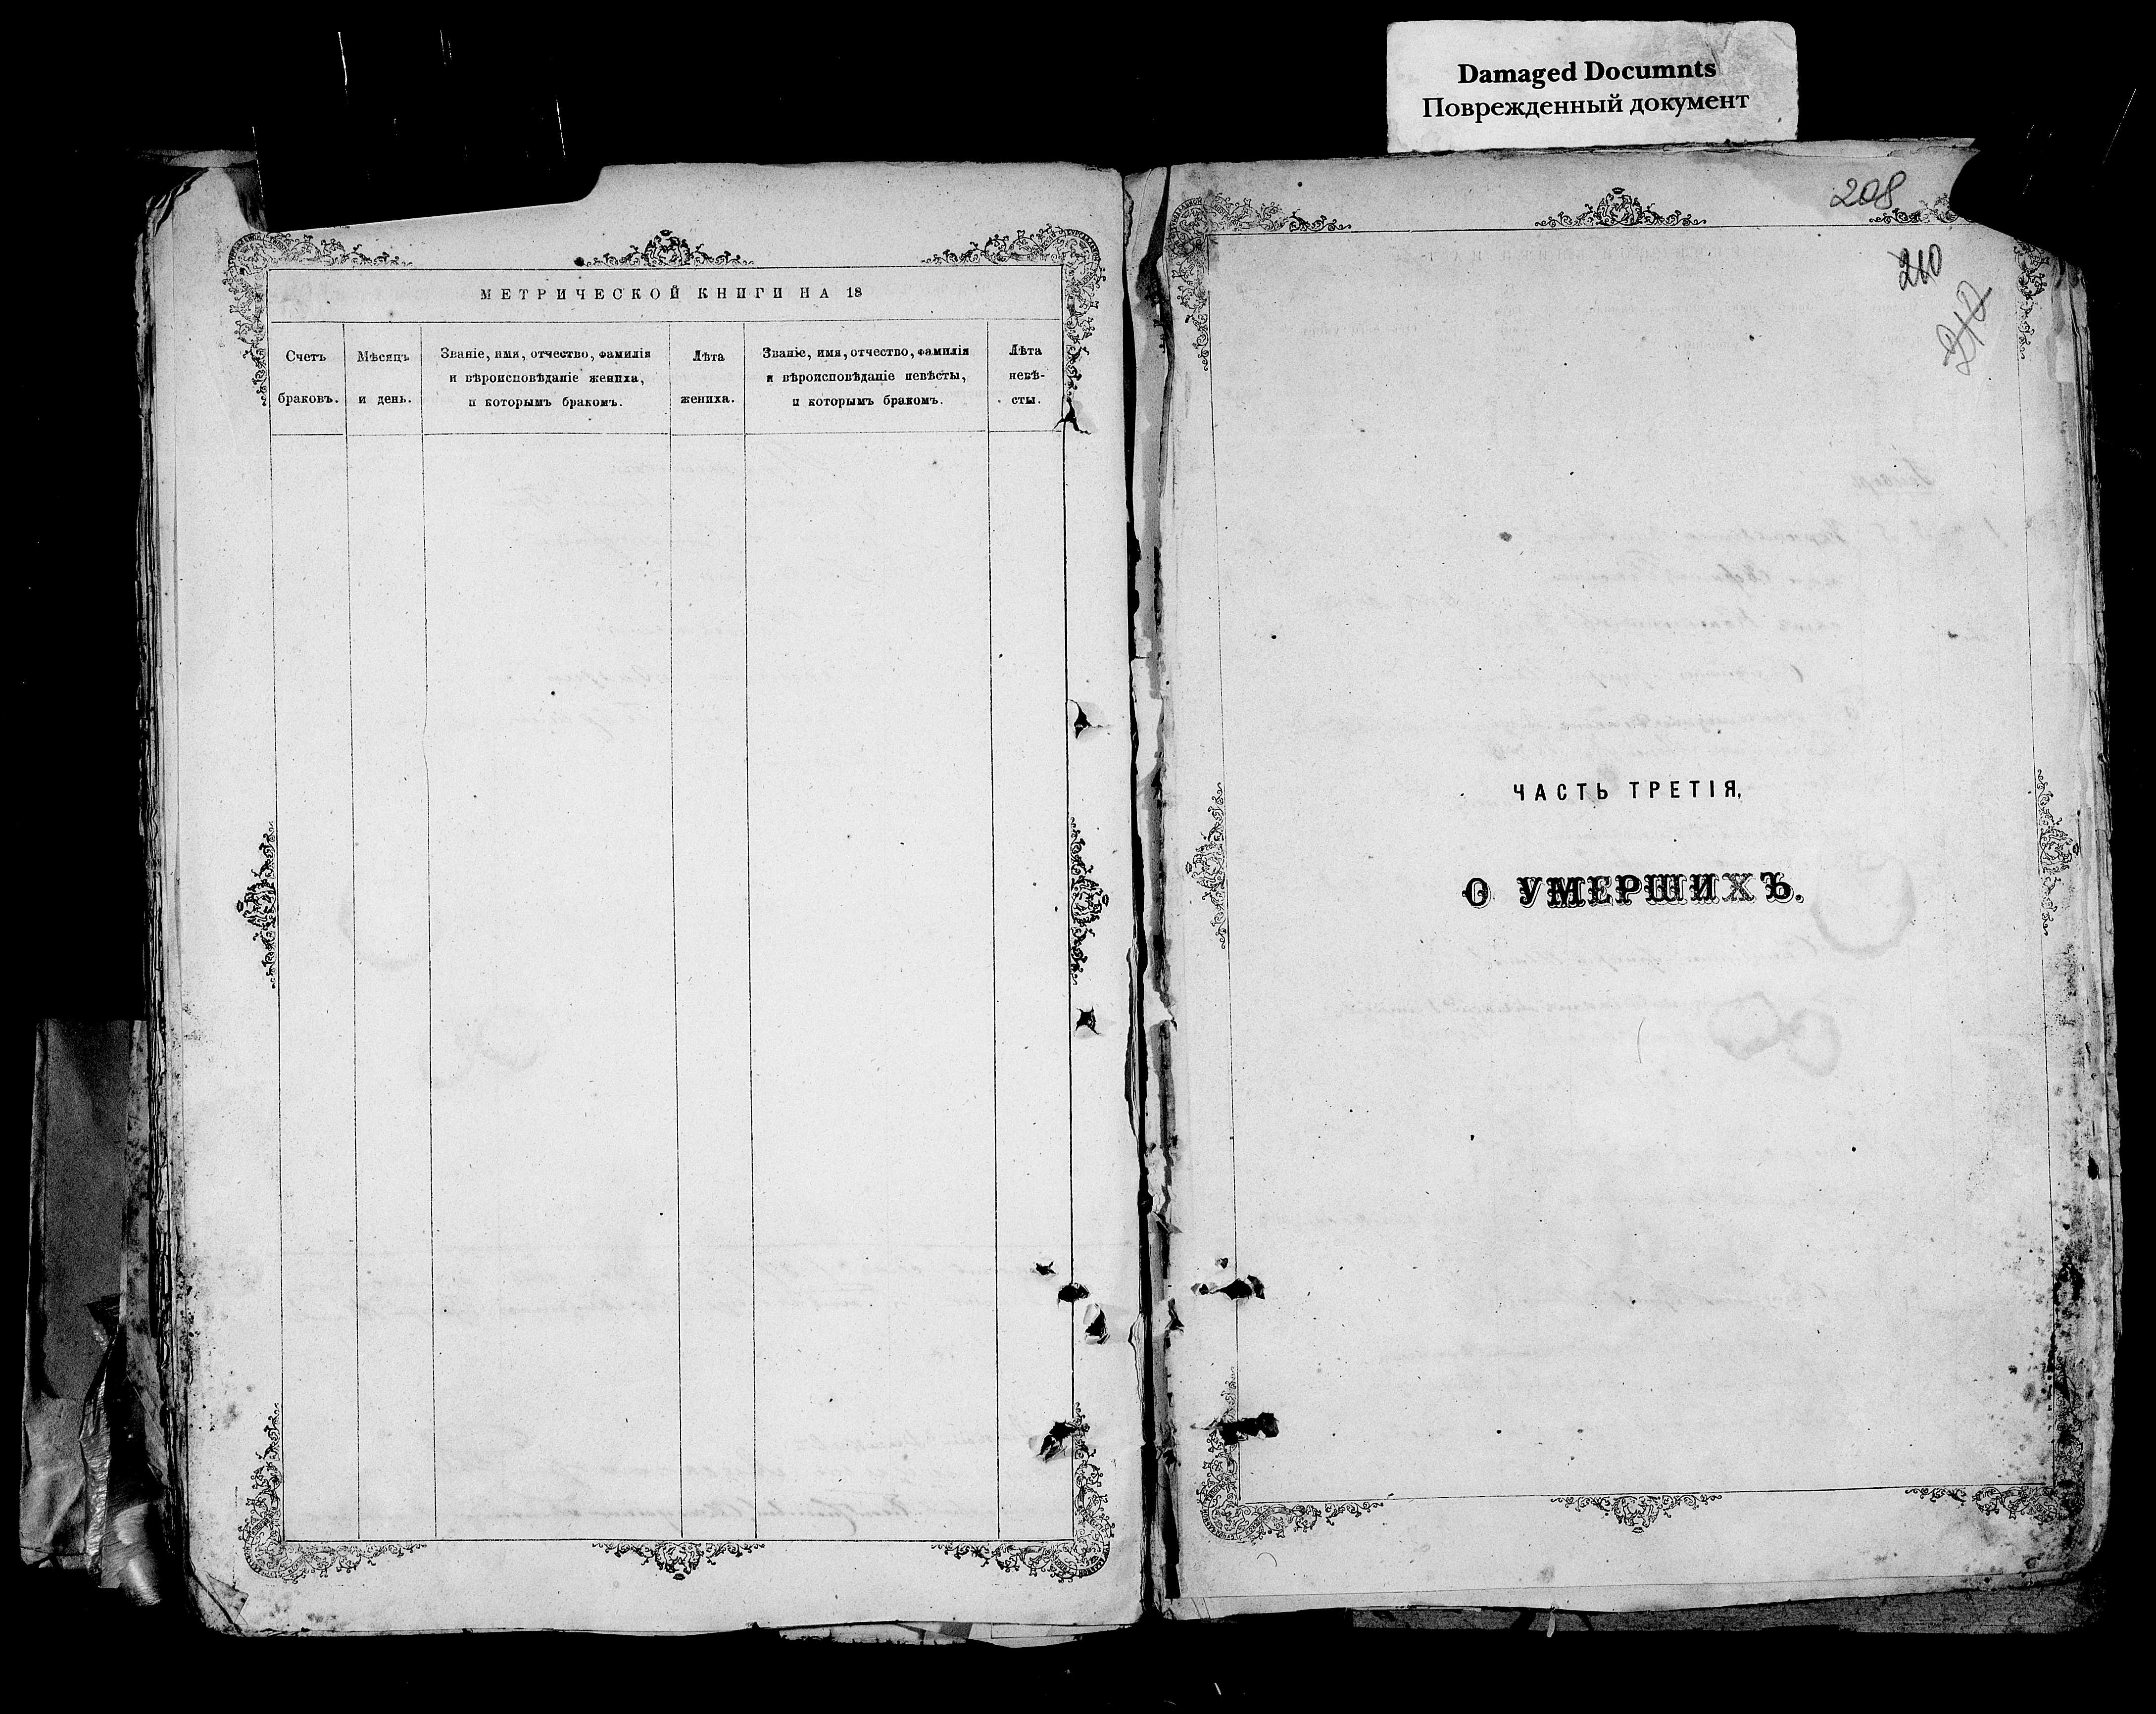 Damaged Documnts
Поврежденный документ
МЕТРИЧЕСКОЙ КНИГИ НА 18
Счетъ браковъ.
Мѣсяцъ и день.
Званіе, имя, отчество, фамилія
и вѣроисповѣданіе жениха,
и которымъ бракомъ.
Лѣта жениха.
Званіе, имя, отчество, фамилія
и вѣроисповѣданіе невѣсты,
и которымъ бракомъ.
Лѣта
невѣ-
сты.
208
210
210
ЧАСТЬ ТРЕТІЯ,
О УМЕРШИХЪ.